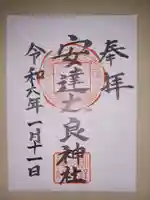 奉拝
安達太良神社
令和六年一月十一日